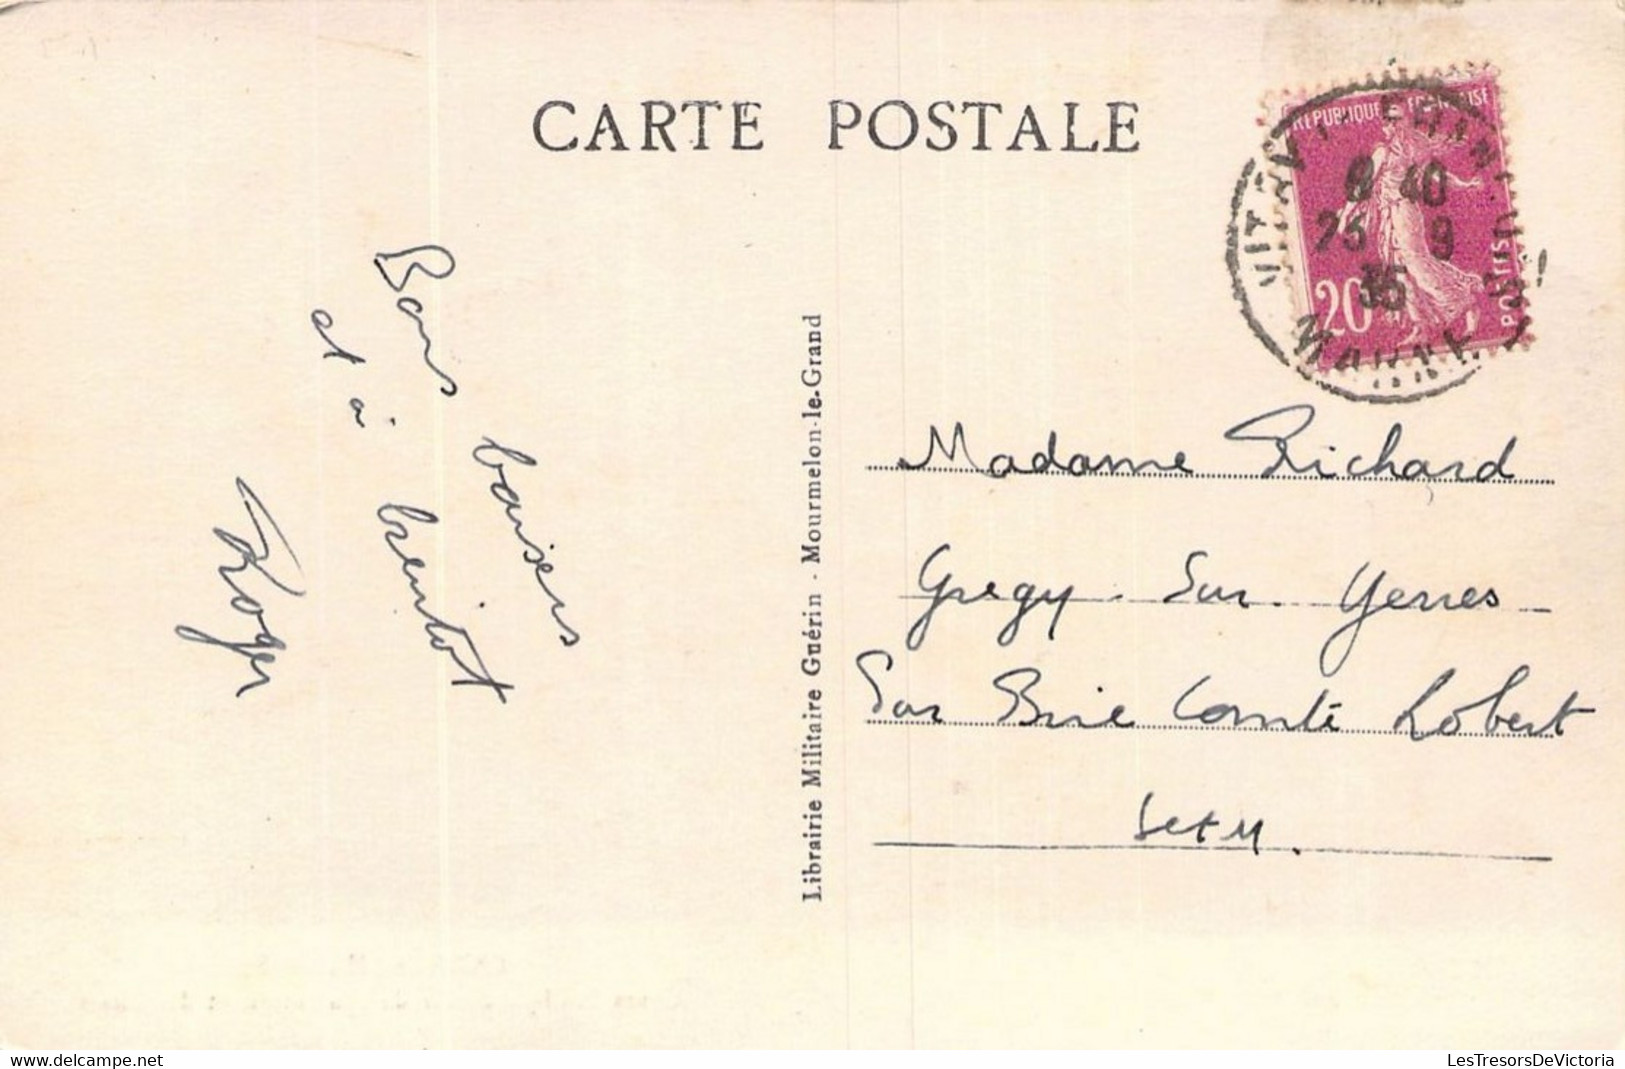 CARTE POSTALE
RÉPUBLIQUE FRANÇAISE
POSTES
20
VITRY-LE-FRANÇOIS
8 40
23 9
35
MARNE
Bons baisers
et à bientot
Roger
Librairie Militaire Guérin - Mourmelon-le-Grand
Madame Richard
Gregy Sur Yerres
Par Brie Comte Robert
S et M.
LesTresorsDeVictoria